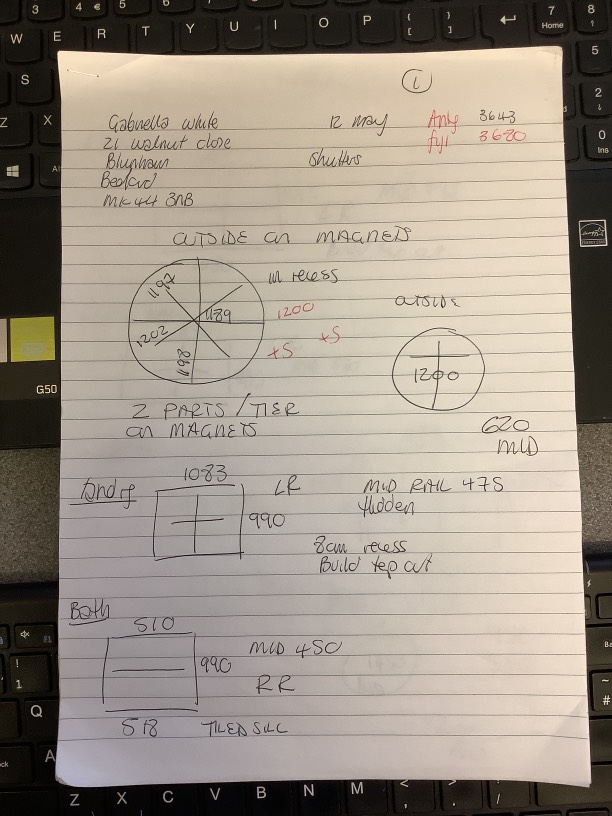 1
Gabriella white 12 may Andy 3643
21 walnut close fyi 3680
Blunham shutters
Bedford
MK44 3NB
OUTSIDE ON MAGNETS
in recess
1197
1189
1200
1202
1198
+5 +5
OUTSIDE
1200
2 PARTS / TIER
ON MAGNETS
620
MID
1083
LR
990
MID RAIL 475
Hidden
8cm recess
Build
Both
510
990
MID 450
RR
518 TILED SILL
3
4 €
5
6
7
Home
8
W
E
R
T
Y
U
I
O
P
{
[
}
]
S
5
Z
X
2
0
Ins
G50
!
1
Q
A
Z
X
C
V
B
N
M
<
,
>
.
/
~
#